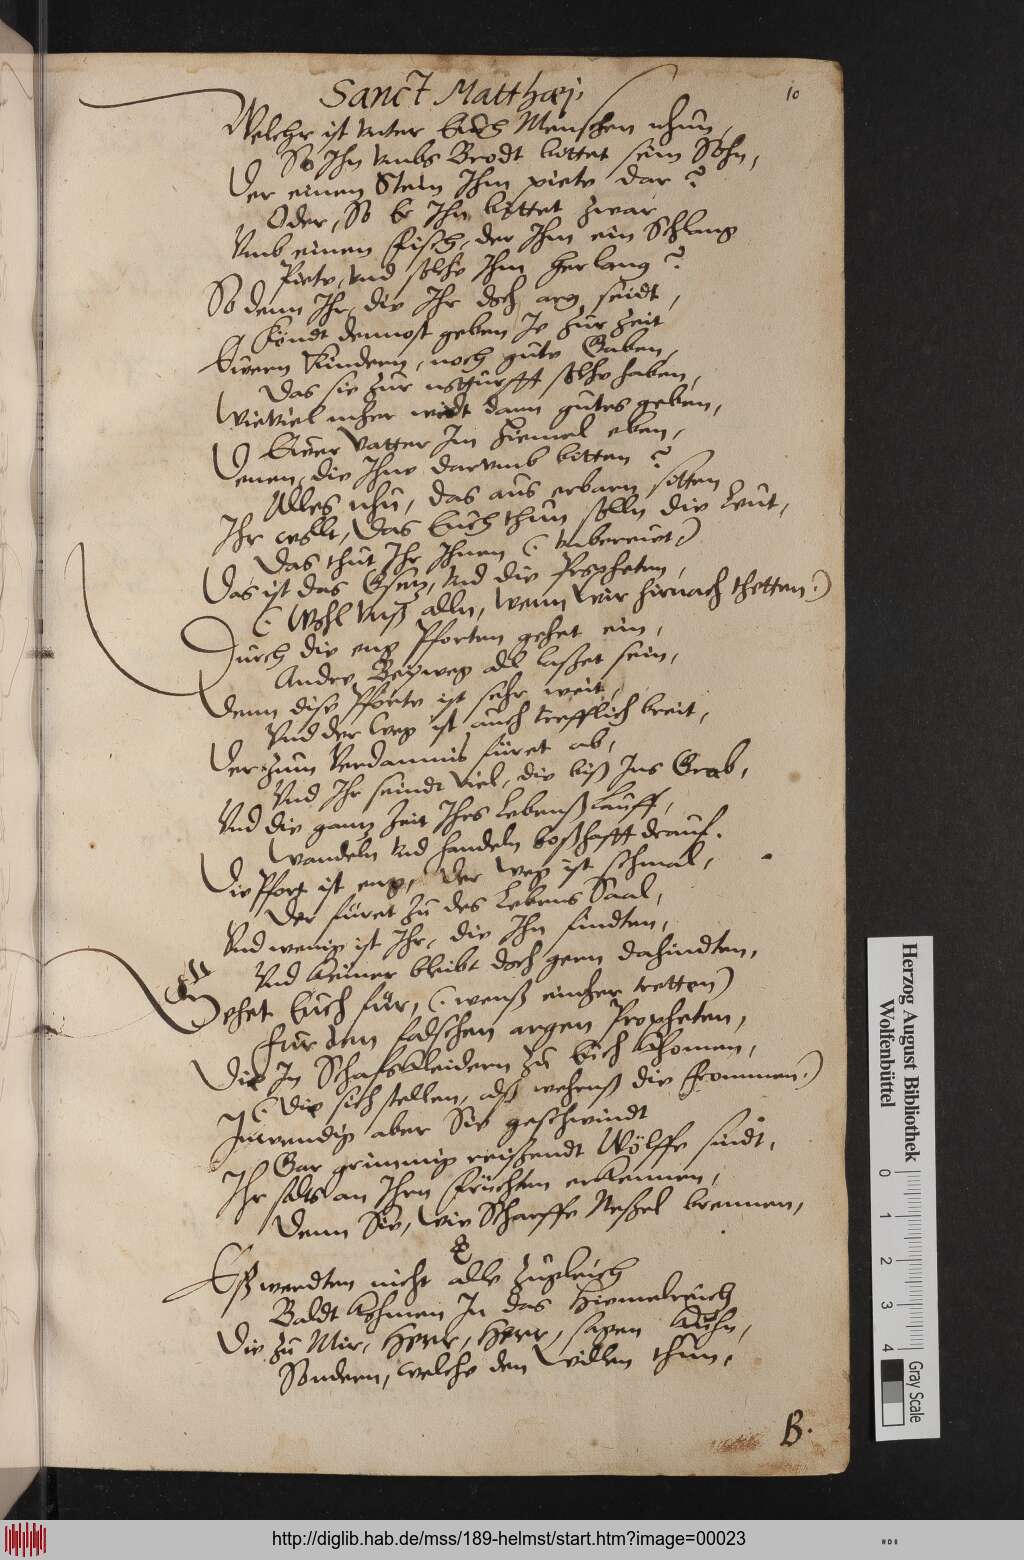 Sanct Matthæj.
10
Welcher ist vnter Euch Menschen nhun,
So Ihn vmbs Brodt bittet sein Sohn,
Der einen Stein Ihm piete dar?
Oder, So Er Ihn bittet zwar
Vmb einen Fisch, der Ihm ein Schlang
Piete, vnd solche Ihm herlang?
So denn Ihr, die Ihr doch arg seidt,
Köndt dennost geben Je zur Zeit
Euern Kindern, noch gute Gaben,
Das sie zur notturfft solche haben,
Wieviel mher wirdt dann gutes geben,
Euer Vatter Im Himel eben,
Denen, die Ihne darumb bitten?
Alles nhu, das aus erbarn sitten
Ihr wollt, das Euch thun solln die Leut,
Das thut Ihr Ihnen (: vnbereut,)
Das ist das Gsetz, vnd die Propheten,
(: Wohl vnß alln, wenn wir hirnach thetten:)
Durch die eng Pforten gehet ein,
Andre Beyweg all laßet sein,
Denn dise Pforte ist sehr weit,
Vnd der Weg ist auch trefflich breit,
Der zum Verdamnis füret ab,
Vnd Ihr seindt viel, die biß Ins Grab,
Vnd die gantz Zeit Ihrs Lebenß Lauff,
Wandeln vnd handeln boßhafft drauf.
Die Pfort ist eng, der Weg ist schmal,
Der füret zu des Lebens Saal,
Vnd wenig ist Ihr, die Ihn findten,
Vnd keiner bleibt doch gern dahindten,
Sehet Euch für, (: wenß einher tretten)
Für den falschen argen Propheten,
Die In Schafskleidern zu Euch khomen,
(: Die sich stellen, alß wehrnß die frommen:)
Inwendig aber Sie geschwindt
Gar grimmig reißendt Wölffe sindt,
Ihr solts an Ihrn früchten erkennen,
Denn Sie, wie Scharffe Neßel brennen,
Eß werdten nicht alle zugleich
Baldt kohmen In das Himelreich
Die zu Mir, Herr, Herr, sagen kühn,
Sondern, welche den Willen thun,
B.
Herzog August Bibliothek
Wolfenbüttel
0 1 2 3 4
Gray Scale
http://diglib.hab.de/mss/189-helmst/start.htm?image=00023